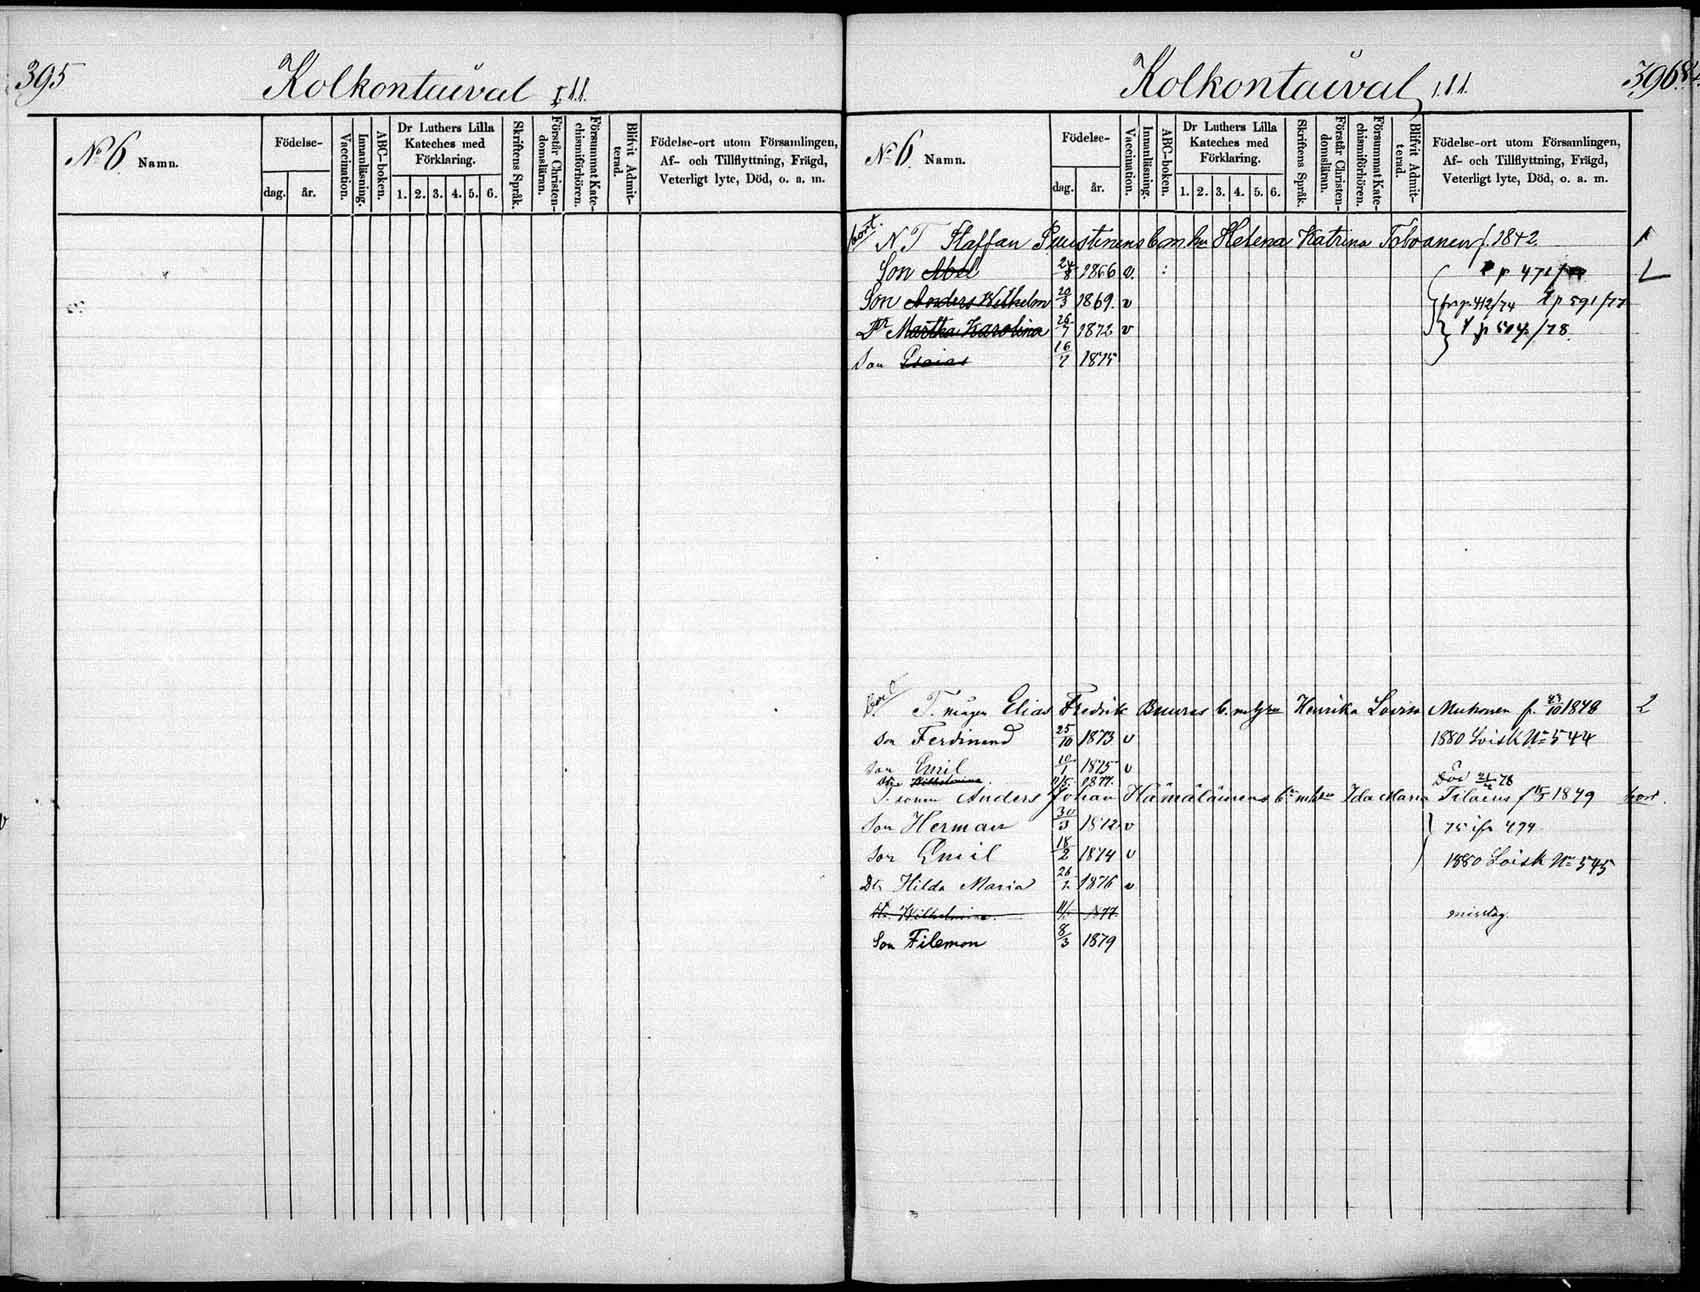 395
Kolkontaival
No 6. Namn.
Födelse-
dag. år.
Vaccination.
Innanläsning.
ABC-boken.
Dr Luthers Lilla Kateches med Förklaring.
1. 2. 3. 4. 5. 6.
Skriftens Språk.
Förstår Christendomsläran.
Försummat Katechismiförhören.
Blifvit Admitterad.
Födelse-ort utom Församlingen, Af- och Tillflyttning, Frägd, Veterligt lyte, Död, o. a. m.
Kolkontaival
396
No 6. Namn.
Födelse-
dag. år.
Vaccination.
Innanläsning.
ABC-boken.
Dr Luthers Lilla Kateches med Förklaring.
1. 2. 3. 4. 5. 6.
Skriftens Språk.
Förstår Christendomsläran.
Försummat Katechismiförhören.
Blifvit Admitterad.
Födelse-ort utom Församlingen, Af- och Tillflyttning, Frägd, Veterligt lyte, Död, o. a. m.
bort. Staffan Puustinens m hu Helena Katrina Tolvanen f. 1842. 1
Son Abel 24/8 1866 v p 471
Son Anders Wilhelm 20/3 1869. v fr p 412/74 p 591/77
Dr Martha Karolina 26/7 1872 v
Son Esaias 16/7 1875
T. mågen Elias Fredrik Buures m hu Henrika Lovisa Muhonen f. 1848 2
Son Ferdinand 25/10 1873 v 1880 Loisk No 544
Son Emil 10/1 1875 v
Dtr Wilhelmina 1877. Död 78
Anders Johan Hämäläinens Ida Maria f 1849 bort.
Son Herman 30/3 1872 v 75 ifr 494
Son Emil 18/2 1874 v 1880 Loisk No 545
Dtr Hilda Maria 1876 v
Dtr Wilhelmina 1877. misstag.
Son Filemon 8/3 1879